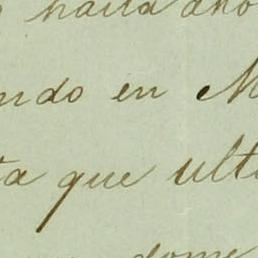 hasta aho
ndo en M
ta que ulti
dome